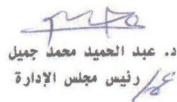 د. عبد الحميد محمد جميل
رئيس مجلس الإدارة